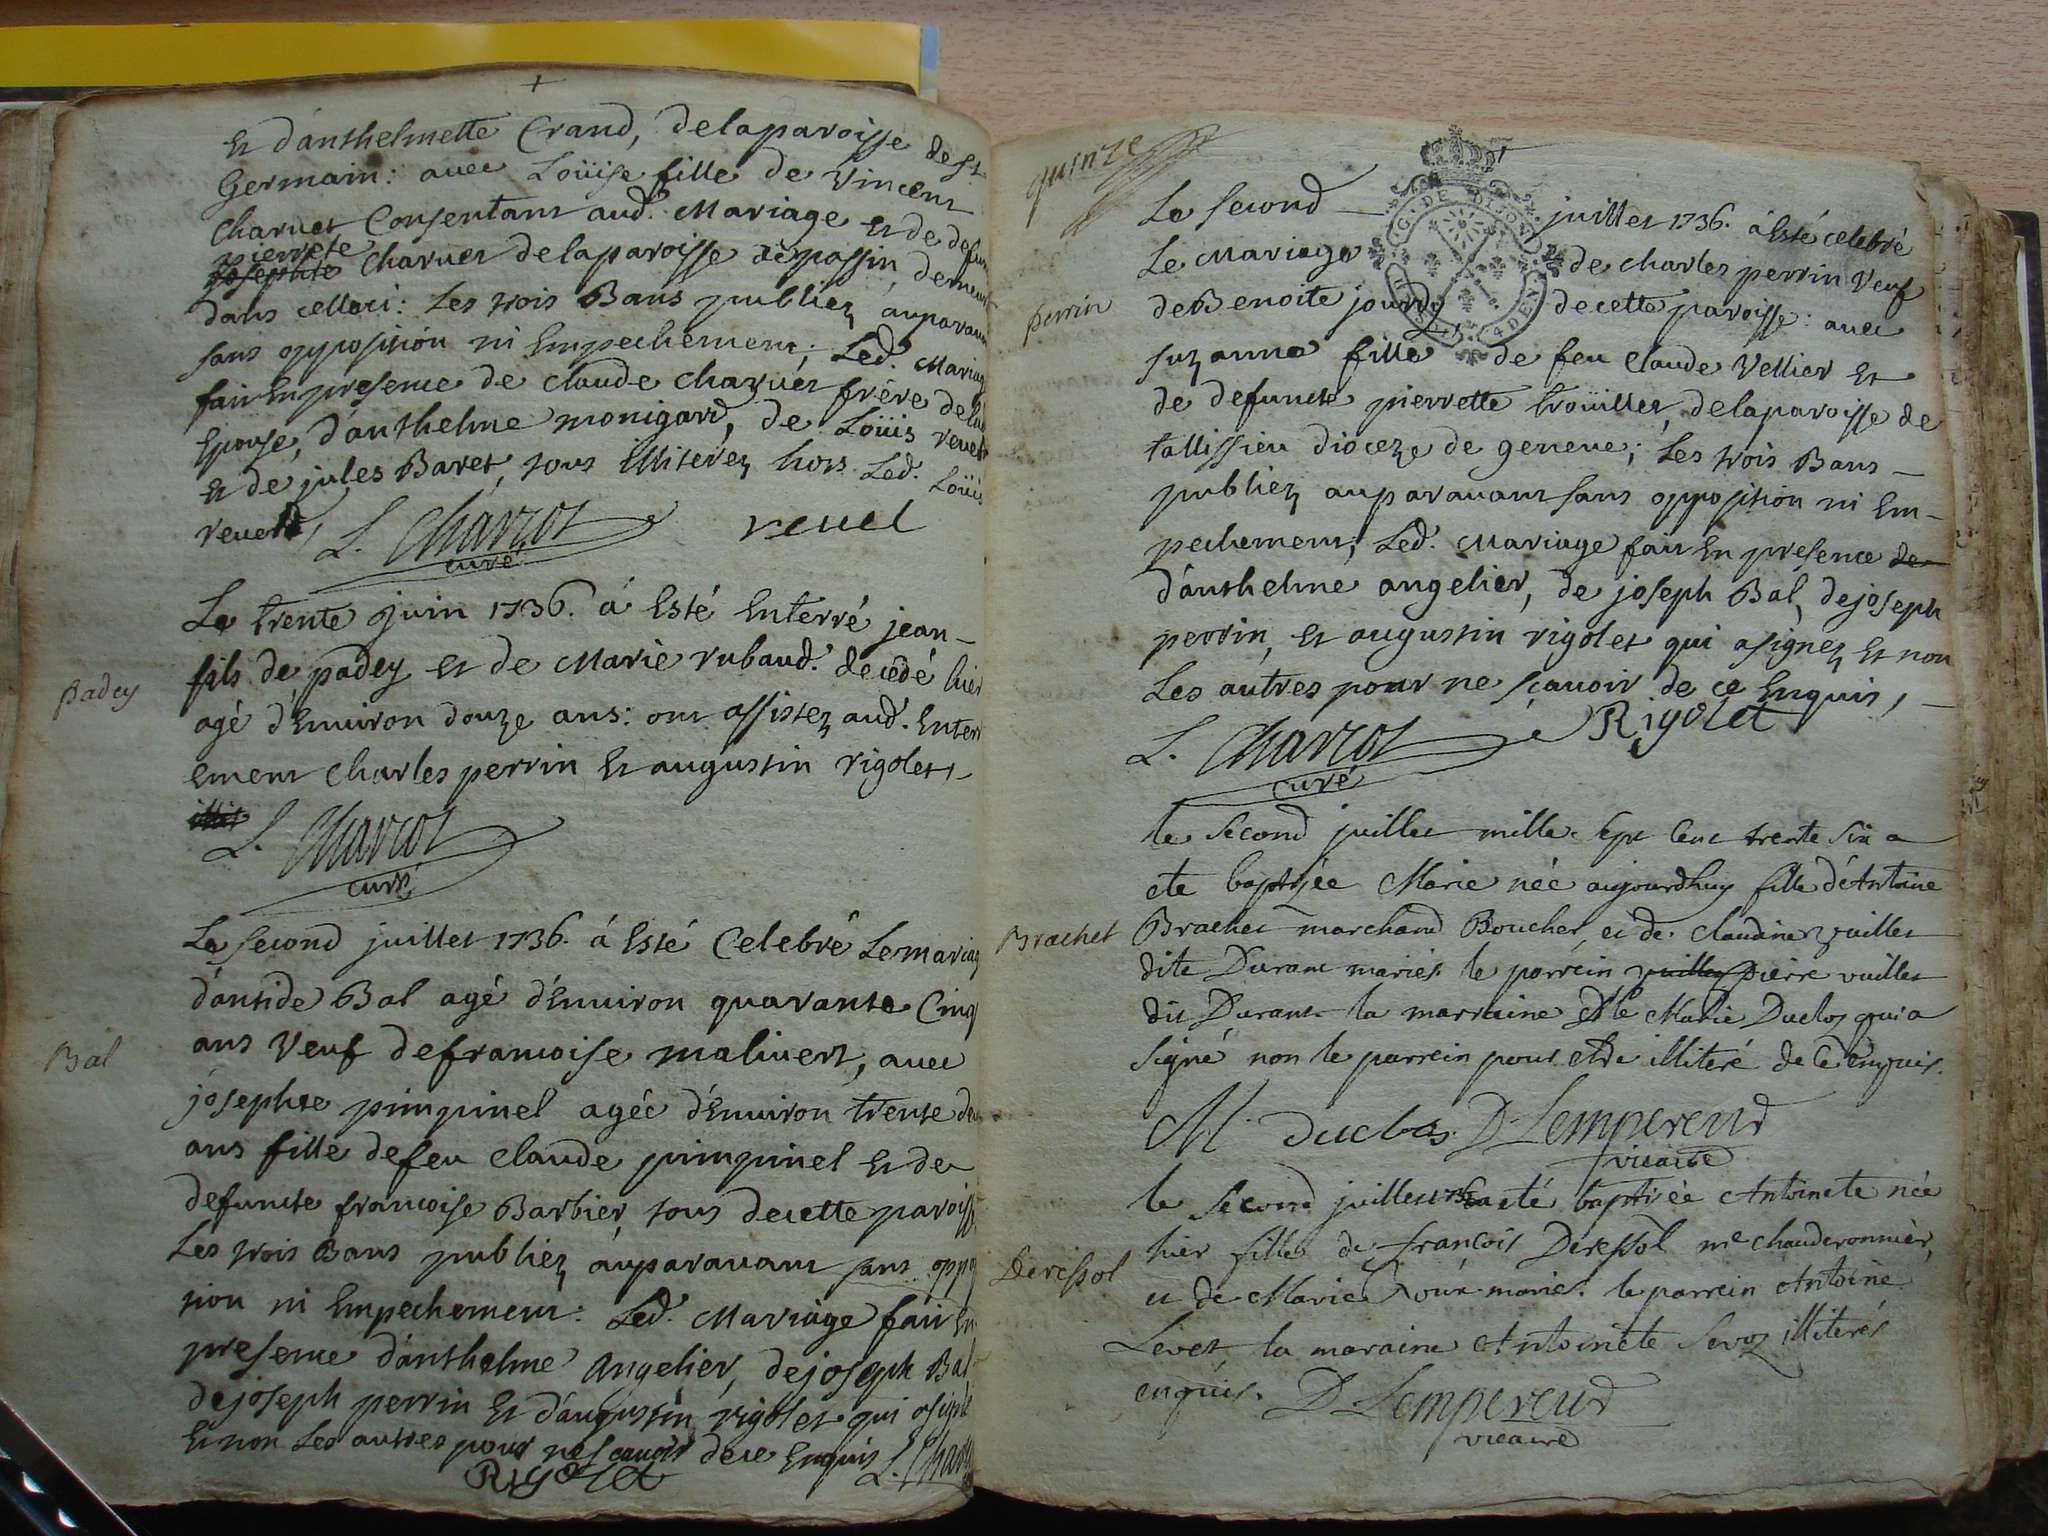 Et d'anthelmette Crand, de la paroisse de St
Germain: avec Loüise fille de Vincent
Charvet Consentant aud. Mariage et de defun
pierrete
josephte Charvet de la paroisse de passin, demeur
dans celle ci: Les trois Bans publiez auparavan
sans opposition ni Empechement; Led. Mariag
fait En presence de claude charvet frère de la
Epouse, d'anthelme monigard, de Loüis revel
et de jules Baret, tous illiterez hors Led. Loüis
revel,
L. Charcot
curé
revel
Le trente juin 1736. á Esté Enterré jean
fils de padey et de Marie rubaud. decedé hier
agé d'Environ douze ans: ont assistez aud. Enterr
ement charles perrin Et augustin rigolet
padey
L. Charcot
curé
Le second juillet 1736. á Esté Celebré Le mariag
d'antide Bal agé d'Environ quarante Cinq
ans Veuf de francoise malivert, avec
Bal
josephte pimpinel agée d'Environ trente deu
ans fille de feu claude pimpinel Et de
defuncte francoise Barbier, tous de cette paroiss
Les trois Bans publiez auparavant sans oppo
tion ni Empechement: Led. Mariage fait En
presence d'anthelme Angelier, de joseph Bal
de joseph perrin Et d'augustin rigolet qui a signé
Et non Les autres pour ne scavoir de ce Enquis L. Char
Rigolet
quinze
G. DE DIJON
4 DEN.
Le second juillet 1736. á Esté celebré
Le Mariage de charles perrin Veuf
perrin
de Benoite jourdy de cette paroisse: avec
suzanne fille de feu claude Vellier Et
de defuncte pierrette trouillet, de la paroisse de
tallissieu dioceze de geneve; Les trois Bans
publiez auparavant sans opposition ni Em-
pechement; Led. Mariage fait En presence de
d'anthelme angelier, de joseph Bal, de joseph
perrin, et augustin rigolet qui a signez Et non
Les autres pour ne scavoir de ce Enquis,
L. Charcot
curé
Rigolet
le second juillet mille sept cent trente six a
ete baptisée Marie née aujourdhuy fille d'Antoine
Brachet
Brachet marchand Boucher, et de claudine vuillet
dite Durant mariés. le parrein vuillet pierre vuillet
dit Durant la marraine Dlle Marie Duclos qui a
signé non le parrein pour etre illiteré de ce enquis.
M. duclos D Lempereur
vicaire
le second juillet 1736 a eté baptisée Antoinete née
hier fille de françois Deressol me chauderonnier,
Deressol
et de Marie Roux mariés. le parrein Antoine
Levet la maraine Antoinete Sevoz illiterés
enquis. D Lempereur
vicaire